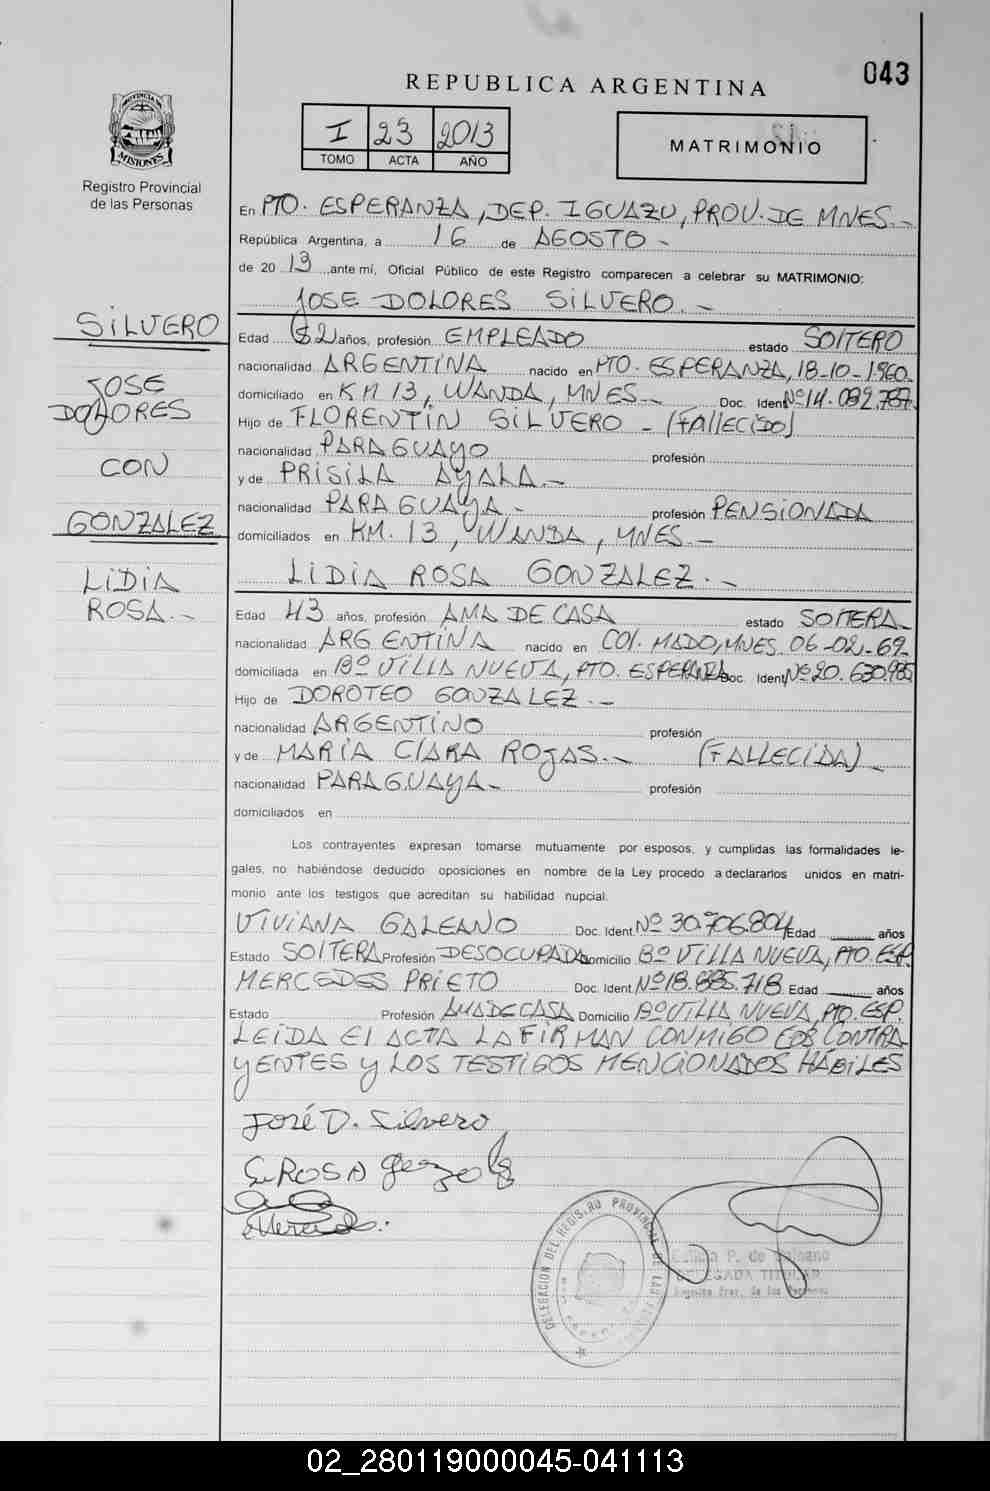 043
REPUBLICA ARGENTINA
PROVINCIA DE MISIONES
Registro Provincial
de las Personas
I 23 2013
TOMO ACTA AÑO
MATRIMONIO
En PTO. ESPERANZA, DEP. IGUAZU, PROV. DE MNES.-
República Argentina, a 16 de AGOSTO -
de 2013 ante mí, Oficial Público de este Registro comparecen a celebrar su MATRIMONIO:
JOSE DOLORES SILVERO.-
SILVERO
JOSE
DOLORES
CON
GONZALEZ
LIDIA
ROSA.-
Edad 52 años, profesión EMPLEADO estado SOLTERO
nacionalidad ARGENTINA nacido en PTO. ESPERANZA, 18-10-1960.
domiciliado en KM 13, WANDA, MNES.- Doc. Ident. Nº 14.092.787.
Hijo de FLORENTIN SILVERO - (FALLECIDO)
nacionalidad PARAGUAYO profesión
y de PRISILA AYALA.-
nacionalidad PARAGUAYA.- profesión PENSIONADA
domiciliados en KM. 13, WANDA, MNES.-
LIDIA ROSA GONZALEZ.-
Edad 43 años, profesión AMA DE CASA estado SOLTERA-
nacionalidad ARGENTINA nacido en COL. MADO, MNES. 06-02-69.
domiciliada en Bº VILLA NUEVA, PTO. ESPERANZA Doc. Ident. Nº 20.630.985
Hijo de DOROTEO GONZALEZ.-
nacionalidad ARGENTINO profesión
y de MARIA CLARA ROJAS.- (FALLECIDA)-
nacionalidad PARAGUAYA- profesión
domiciliados en
Los contrayentes expresan tomarse mutuamente por esposos, y cumplidas las formalidades le-
gales, no habiéndose deducido oposiciones en nombre de la Ley procedo a declararlos unidos en matri-
monio ante los testigos que acreditan su habilidad nupcial.
VIVIANA GALEANO Doc. Ident. Nº 30.706.804 Edad años
Estado SOLTERA Profesión DESOCUPADA Domicilio Bº VILLA NUEVA, PTO. ESP.
MERCEDES PRIETO Doc. Ident. Nº 18.885.718 Edad años
Estado Profesión AMA DE CASA Domicilio Bº VILLA NUEVA, PTO. ESP.
LEIDA El ACTA LA FIRMAN CONMIGO LOS CONTRA-
YENTES Y LOS TESTIGOS MENCIONADOS HÁBILES
José D. Silvero
L. ROSA Gonzalez
DELEGACION DEL REGISTRO PROVINCIAL DE LAS
P. de
DELEGADA TITULAR
Registro Prov. de las Personas
02_280119000045-041113